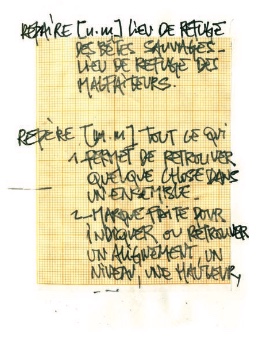 REPAIRE [n.m] LIEU DE REFUGE
DES BÊTES SAUVAGES.
LIEU DE REFUGE DES
MALFAITEURS.
REPÈRE [n.m] TOUT CE QUI
1_PERMET DE RETROUVER
QUELQUE CHOSE DANS
UN ENSEMBLE.
2_MARQUE FAITE POUR
INDIQUER OU RETROUVER
UN ALIGNEMENT, UN
NIVEAU, UNE HAUTEUR,